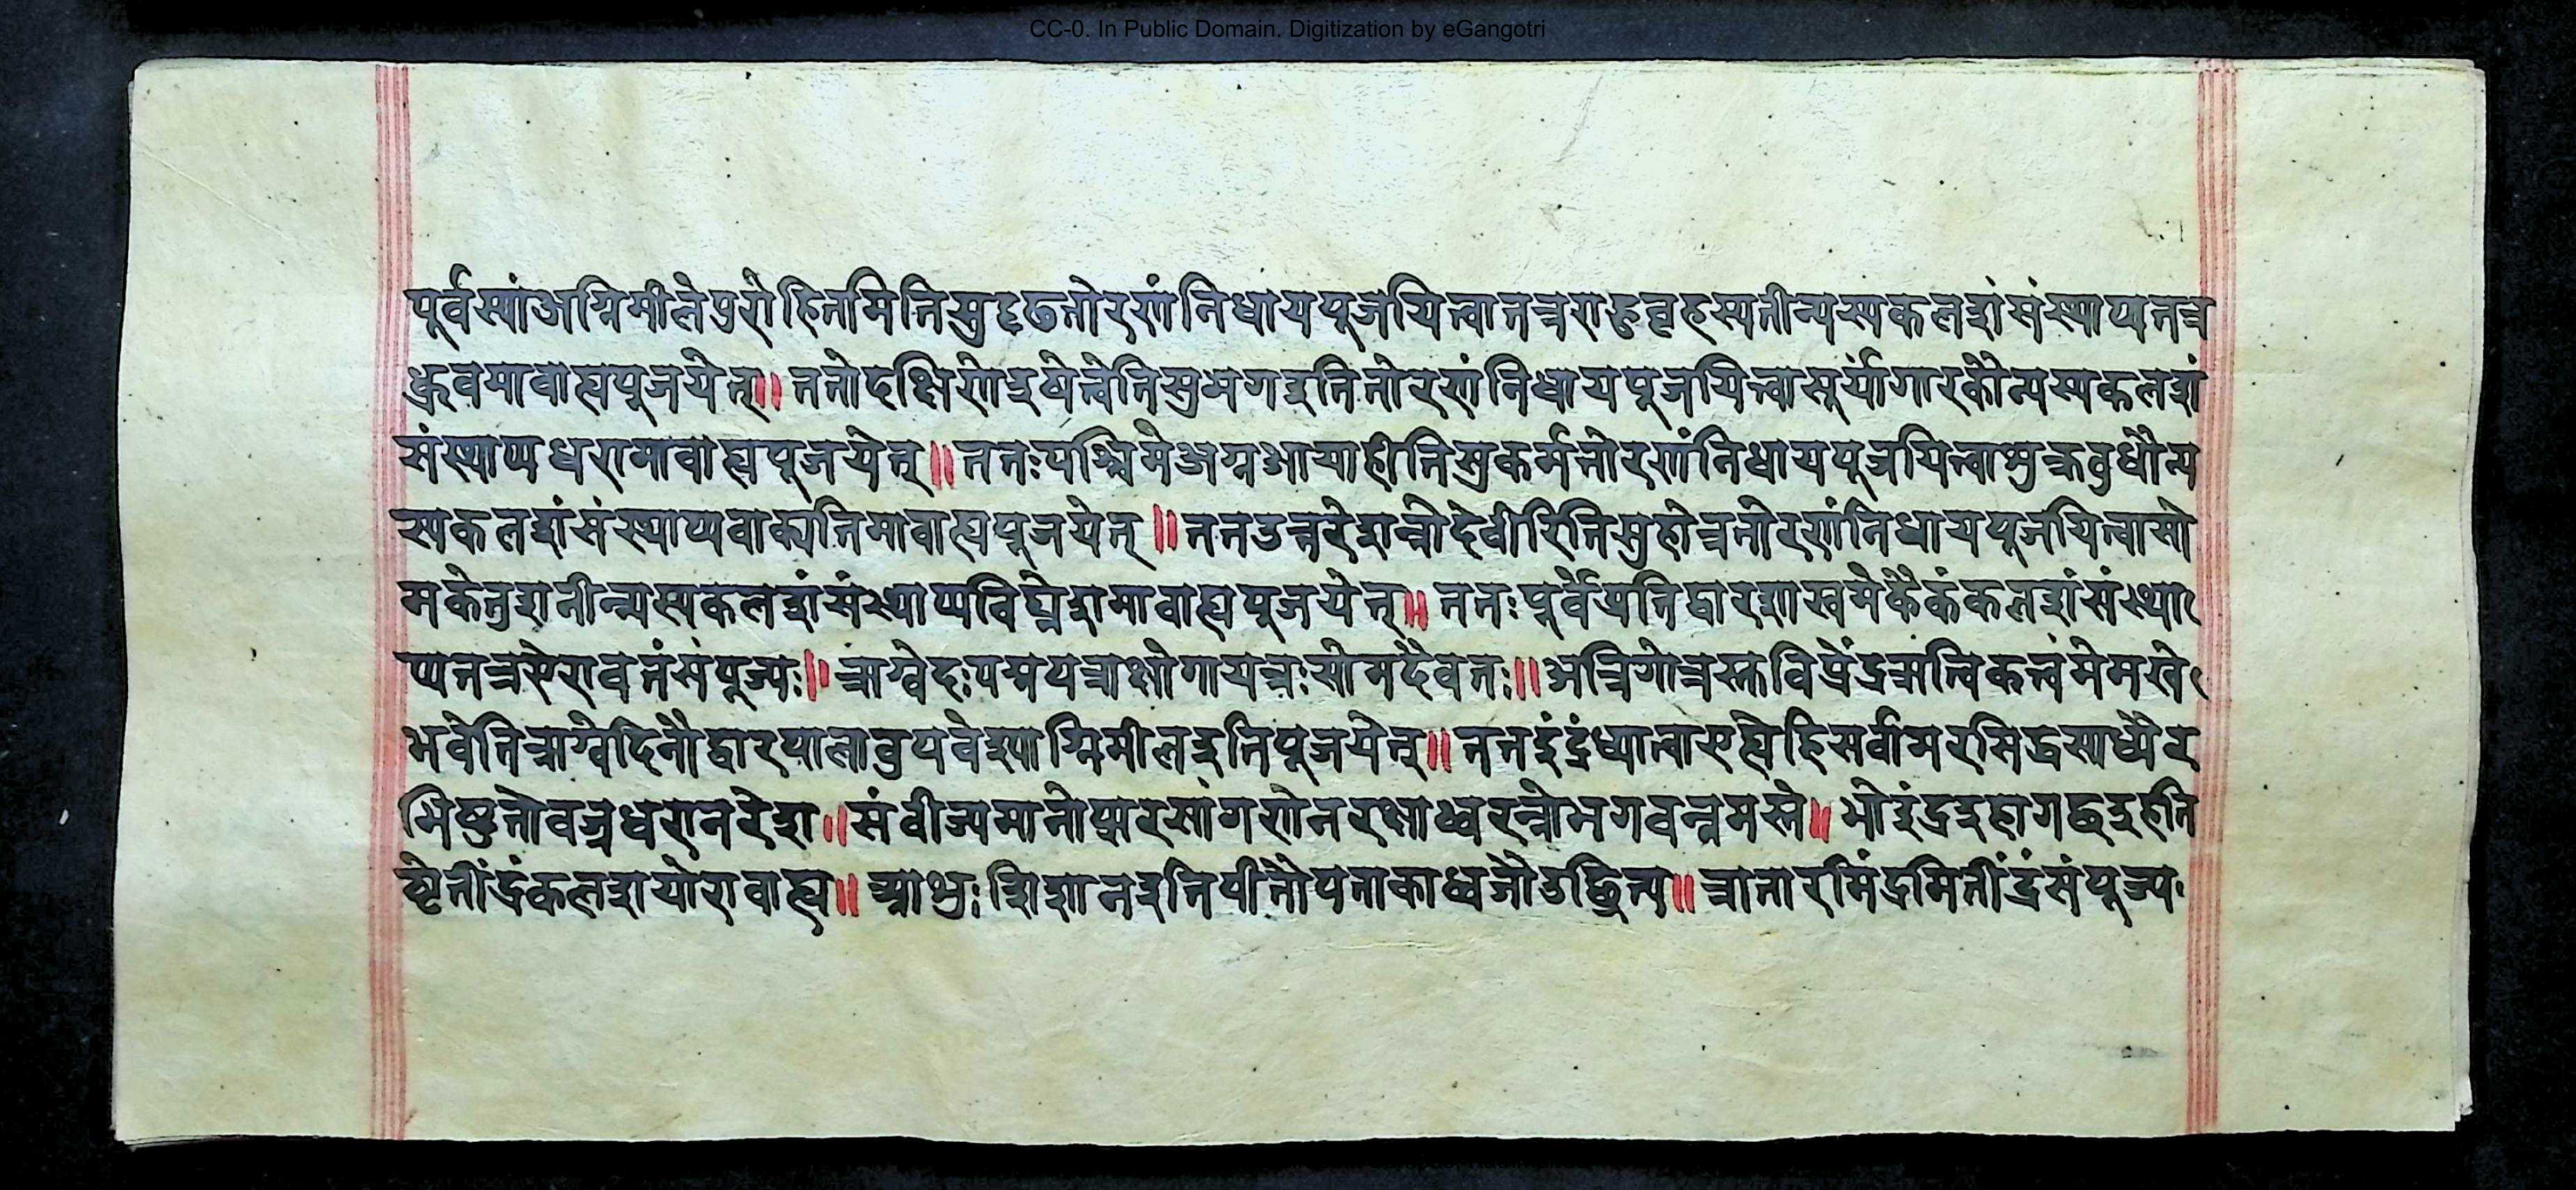 CC-0. In Public Domain. Digitization by eGangotri
पूर्वस्यांअग्निमीलेपुरोहितमितिसुदृढतोरणंनिधायपूजयित्वातत्रराहुबृहस्पतीन्यस्यकलशंसंस्थाप्यतत्र
ध्रुवमावाह्यपूजयेत्॥ततोदक्षिणेइषेत्वेतिसुभगइतितोरणंनिधायपूजयित्वासूर्यांगारकौन्यस्यकलशं
संस्थाप्यधरामावाह्यपूजयेत्॥ततःपश्चिमेअग्नआयाहीतिसुकर्मतोरणंनिधायपूजयित्वाशुक्रबुधौन्य
स्यकलशंसंस्थाप्यवाक्पतिमावाह्यपूजयेत्॥ततउत्तरेशन्नोदेवीरितिसुहोत्रतोरणंनिधायपूजयित्वासो
मकेतुशनीन्यस्यकलशंसंस्थाप्यविघ्नेशमावाह्यपूजयेत्॥ततःपूर्वेप्रतिद्वारशाखमेकैकंकलशंसंस्था
प्यतत्रऐरावतंसंपूज्यः॥ऋग्वेदःपद्मपत्राक्षोगायत्रःसोमदैवतः॥अत्रिगोत्रस्तुविप्रेंद्रऋत्विक्त्वंमेमखे
भवेतिऋग्वेदिनौद्वारपालावुपवेश्याग्निमीलइतिपूजयेत्॥ततइंद्रंध्यात्वाएह्येहिसर्वामरसिद्धसाध्यैर
भिष्टुतोवज्रधरामरेश॥संवीज्यमानोप्सरसांगणेनरक्षाध्वरन्नोभगवन्नमस्ते॥भोइंद्रइहागछइहति
ष्ठेतींद्रंकलशयोरावाह्य॥आशुःशिशानइतिपीतौपताकाध्वजौउछ्रित्य॥त्रातारमिंद्रमितींद्रंसंपूज्य